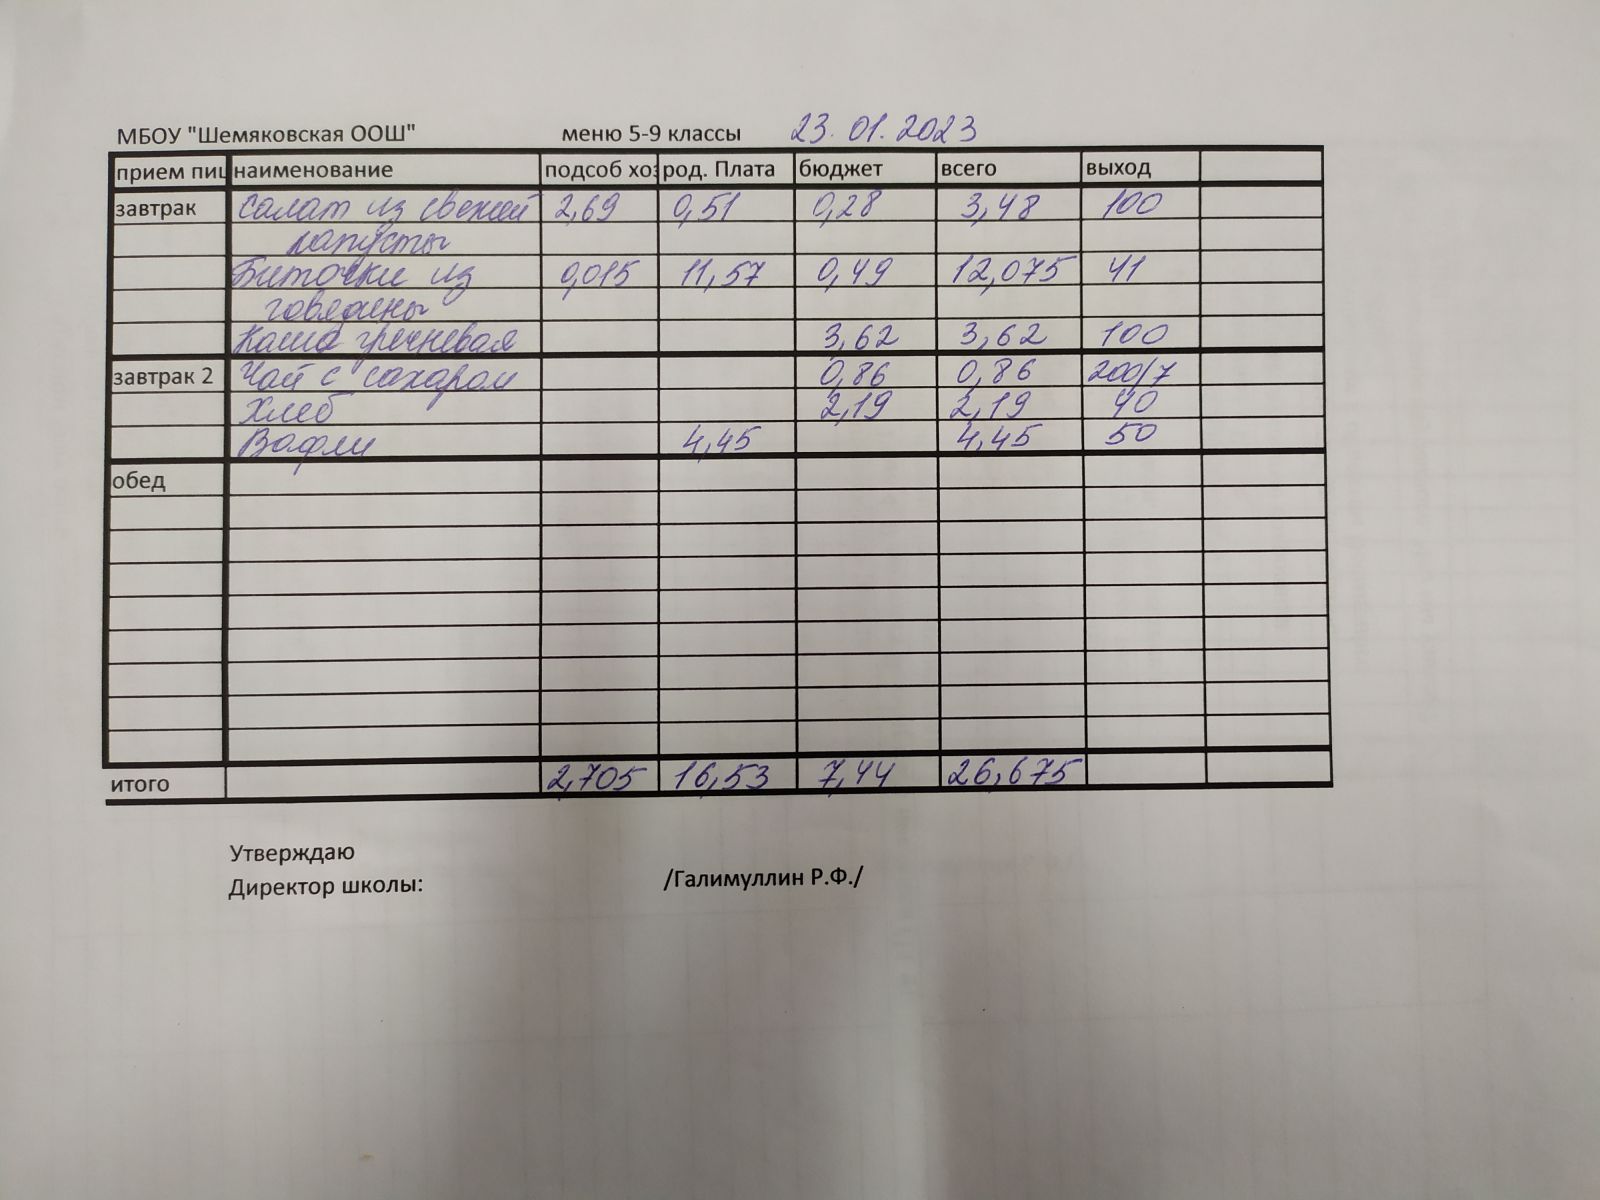 МБОУ "Шемяковская ООШ" меню 5-9 классы 23.01.2023
прием пищ наименование подсоб хоз род. Плата бюджет всего выход
завтрак Салат из свежей 2,69 0,51 0,28 3,48 100
капусты
Биточки из 0,015 11,57 0,49 12,075 41
говядины
Каша гречневая 3,62 3,62 100
завтрак 2 Чай с сахаром 0,86 0,86 200/7
Хлеб 2,19 2,19 40
Вафли 4,45 4,45 50
обед
итого 2,705 16,53 7,44 26,675
Утверждаю
Директор школы: /Галимуллин Р.Ф./